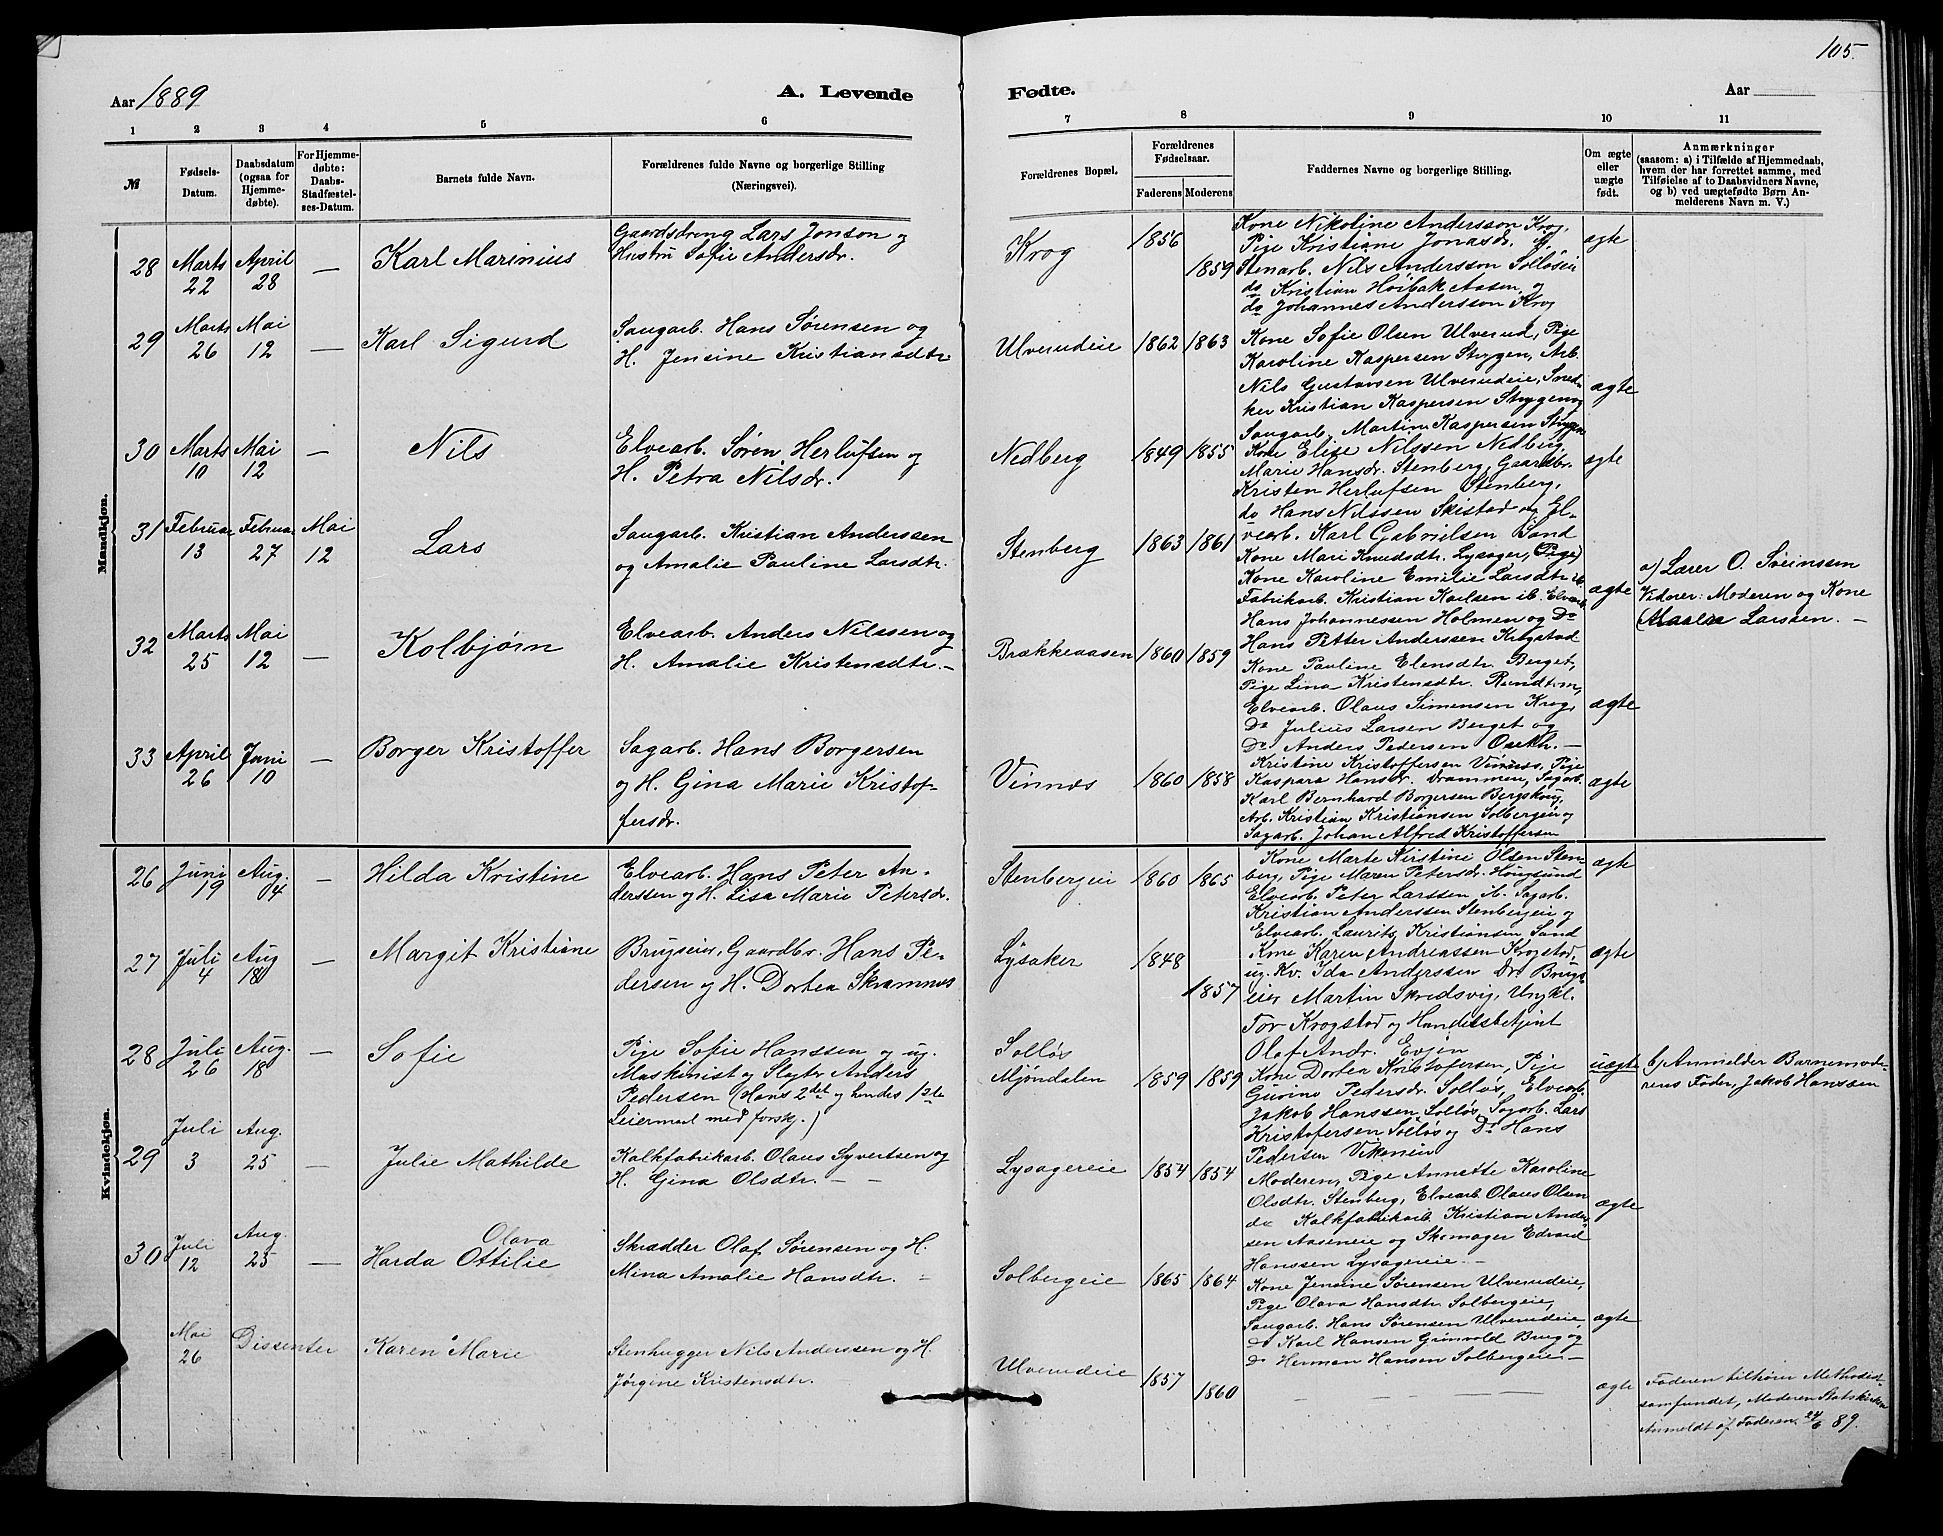 105.
Aar 1889
A. Levende
Fødte.
Aar
1 2 3 4 5 6 7 8 9 10 11
№
Fødsels-
Datum.
Daabsdatum
(ogsaa for
Hjemme-
døbte).
For Hjemme-
døbte:
Daabs-
Stadfæstel-
ses-Datum.
Barnets fulde Navn.
Forældrenes fulde Navne og borgerlige Stilling
(Næringsvei).
Forældrenes Bopæl.
Forældrenes
Fødselsaar.
Faderens Moderens
Faddernes Navne og borgerlige Stilling.
Om ægte
eller
uægte
født.
Anmærkninger
(saasom: a) i Tilfælde af Hjemmedaab,
hvem der har forrettet samme, med
Tilføielse af to Daabsvidners Navne,
og b) ved uægtefødte Børn An-
melderens Navn m. V.)
Mandkjøn.
28 Marts 22 April 28 — Karl Marinius
Gaardsdreng Lars Jonson og
Hustru Sofie Andersdr.
Krog 1856 1859
Kone Nikoline Andersson Krog,
Pige Kristiane Jonasdr.
Stenarb. Nils Andersson Solløsei
do Kristian Høibak Aasen og
do Johannes Andersson Krog
ægte
29 Marts 26 Mai 12 — Karl Sigurd
Saugarb. Hans Sørensen og
H. Jensine Kristiansdtr
Ulverudeie 1862 1863
Kone Sofie Olsen Ulverud, Pige
Karoline Kaspersen Stygen, Arb.
Nils Gustavsen Ulverudeie, Sned-
ker Kristian Kaspersen Stygen og
Saugarb. Martin Kaspersen Stygen
ægte
30 Marts 10 Mai 12 — Nils
Elvearb. Søren Herlufsen og
H. Petra Nilsdr.
Nedberg 1849 1855
Kone Elise Nilssen Nedberg
Marie Hansdr. Stenberg, Gaardbr.
Kristen Herlufsen Stenberg,
do Hans Nilssen Skistad og El-
vearb. Karl Gabrielsen Sand
ægte
31 Februar 13 Februar 27 Mai 12 Lars
Saugarb. Kristian Anderssen
og Amalie Pauline Larsdtr.
Stenberg 1863 1861
Kone Mari Knudsdtr. Lysager, (Pige)
Kone Karoline Emilie Larsdtr ib.
Fabrikarb. Kristian Karlsen ib. Elvearb.
Hans Johannessen Holmen og Do
Hans Petter Anderssen Krogstad
ægte
a) Lærer O. Sveinssen
Vidner: Moderen og Kone
Larssen. —
32 Marts 25 Mai 12 — Kolbjørn
Elvearb. Anders Nilssen og
H. Amalie Kristensdtr. —
Brækkeaasen 1860 1859
Kone Pauline Elensdtr. Berget,
Pige Lina Kristensdtr. Rundtom,
Elvearb. Olaus Simensen Krog,
Do Julius Larsen Berget og
Do Anders Pedersen —
ægte
33 April 26 Juni 10 — Borger Kristoffer
Sagarb. Hans Borgersen
og H. Gina Marie Kristof-
fersdr.
Vinnæs 1860 1858
Kristine Kristoffersen Vinnæs, Pige
Kaspara Hansdr. Drammen, Sagarb.
Karl Bernhard Borgersen Bergskoug,
Arb. Kristian Kristiansen Solbergeie og
Sagarb. Johan Alfred Kristoffersen
ægte
Kvindekjøn.
26 Juni 19 Aug. 4 — Hilda Kristine
Elvearb. Hans Peter An-
derssen og H. Lisa Marie Petersdr.
Stenbergeie 1860 1865
Kone Marte Kirstine Olsen Sten-
berg, Pige Maren Petersdr. Hougsund
Elvearb. Peter Larssen ib. Sagarb.
Kristian Anderssen Stenbergeie og
Elvearb. Laurits Kristiansen Sand
ægte
27 Juli 4 Aug 18 — Margit Kristiane
Brugseier, Gaardbr. Hans Pe-
dersen og H. Dortea Skramnes
Lysaker 1848 1857
Kone Karen Andreassen Krogstad,
ug. Kv. Ida Anderssen Do Brugs
eier Martin Skredsvig, Ungkl.
Tor Krogstad og Handelsbetjent
Olaf Andr. Evjen
ægte
28 Juli 26 Aug. 18 — Sofie
Pige Sofie Hanssen og ug.
Maskinist og Slagter Anders
Pedersen (Hans 2det og hendes 1ste
Leiermaal med forskj.)
Solløs
Mjøndalen 1859 1859
Kone Dortea Kristofersen, Pige
Gurine Pedersdr. Solløs, Elvearb.
Jakob Hanssen Solløs, Sagarb. Lars
Kristofersen Solløs og Do Hans
Pedersen Vikeneie
uægte
b) Anmelder Barnemode-
rens Fader, Jakob Hanssen
29 Juli 3 Aug. 25 — Julie Mathilde
Kalkfabrikarb. Olaus Syvertsen og
H. Gina Olsdtr. — —
Lysagereie 1854 1854
Moderen, Pige Annette Karoline
Olsdtr. Stenberg, Elvearb. Olaus Olsen
do Kalkfabrikarb. Kristian Ander-
sen Aaseneie og Skomager Edvard
Hanssen Lysagereie. —
ægte
30 Juli 12 Aug. 25 — Harda Ottilie Olava
Skrædder Olaf Sørensen og H.
Mina Amalie Hansdtr. —
Solbergeie 1865 1864
Kone Jensine Sørensen Ulverudeie,
Pige Olava Hansdtr. Solbergeie,
Saugarb. Hans Sørensen Ulverudeie,
Do Karl Hansen Grinvold Brug og
Do Herman Hansen Solbergeie —
ægte
Mai 26 Dissenter Karen Marie
Stenhugger Nils Anderssen og H.
Jørgine Kristensdtr.
Ulverudeie 1857 1860
— — — — —
ægte
Faderen tilhører Methodist-
samfundet, Moderen Statskirken
Anmeldt af Faderen 24/6 89.